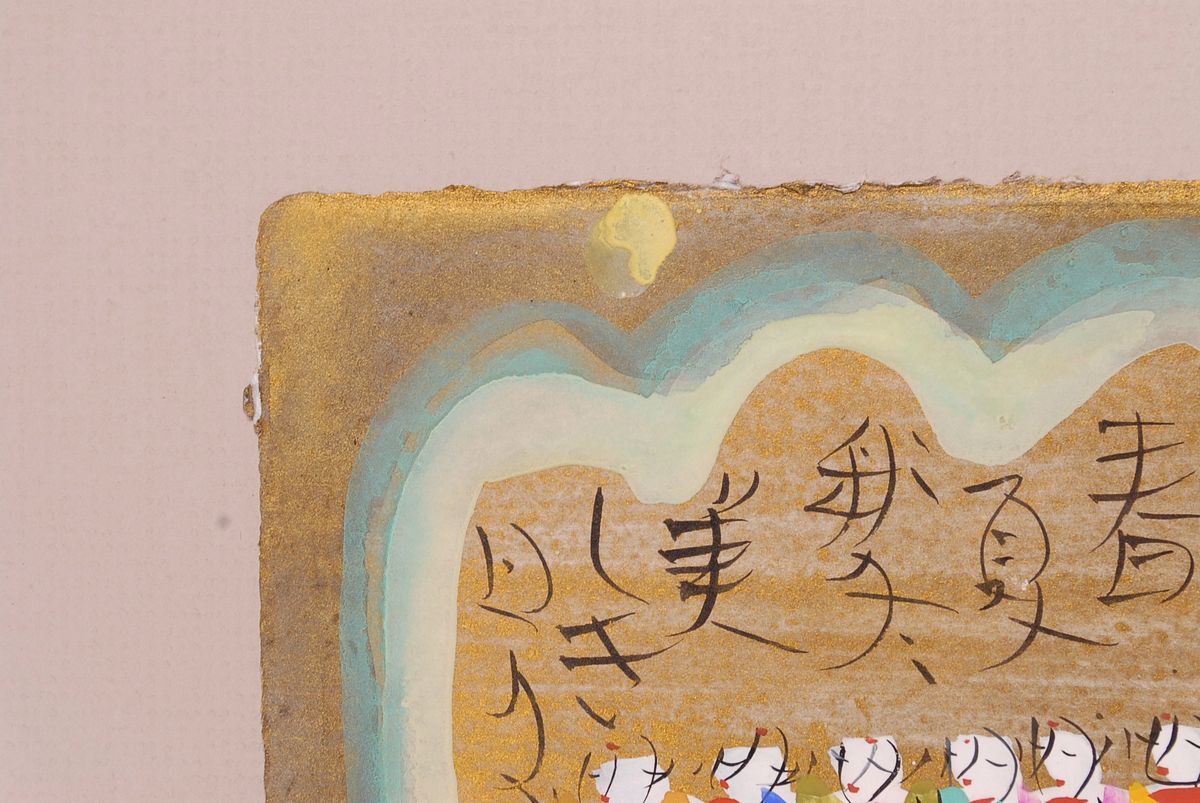 春
夏
秋冬
美
しき
日々